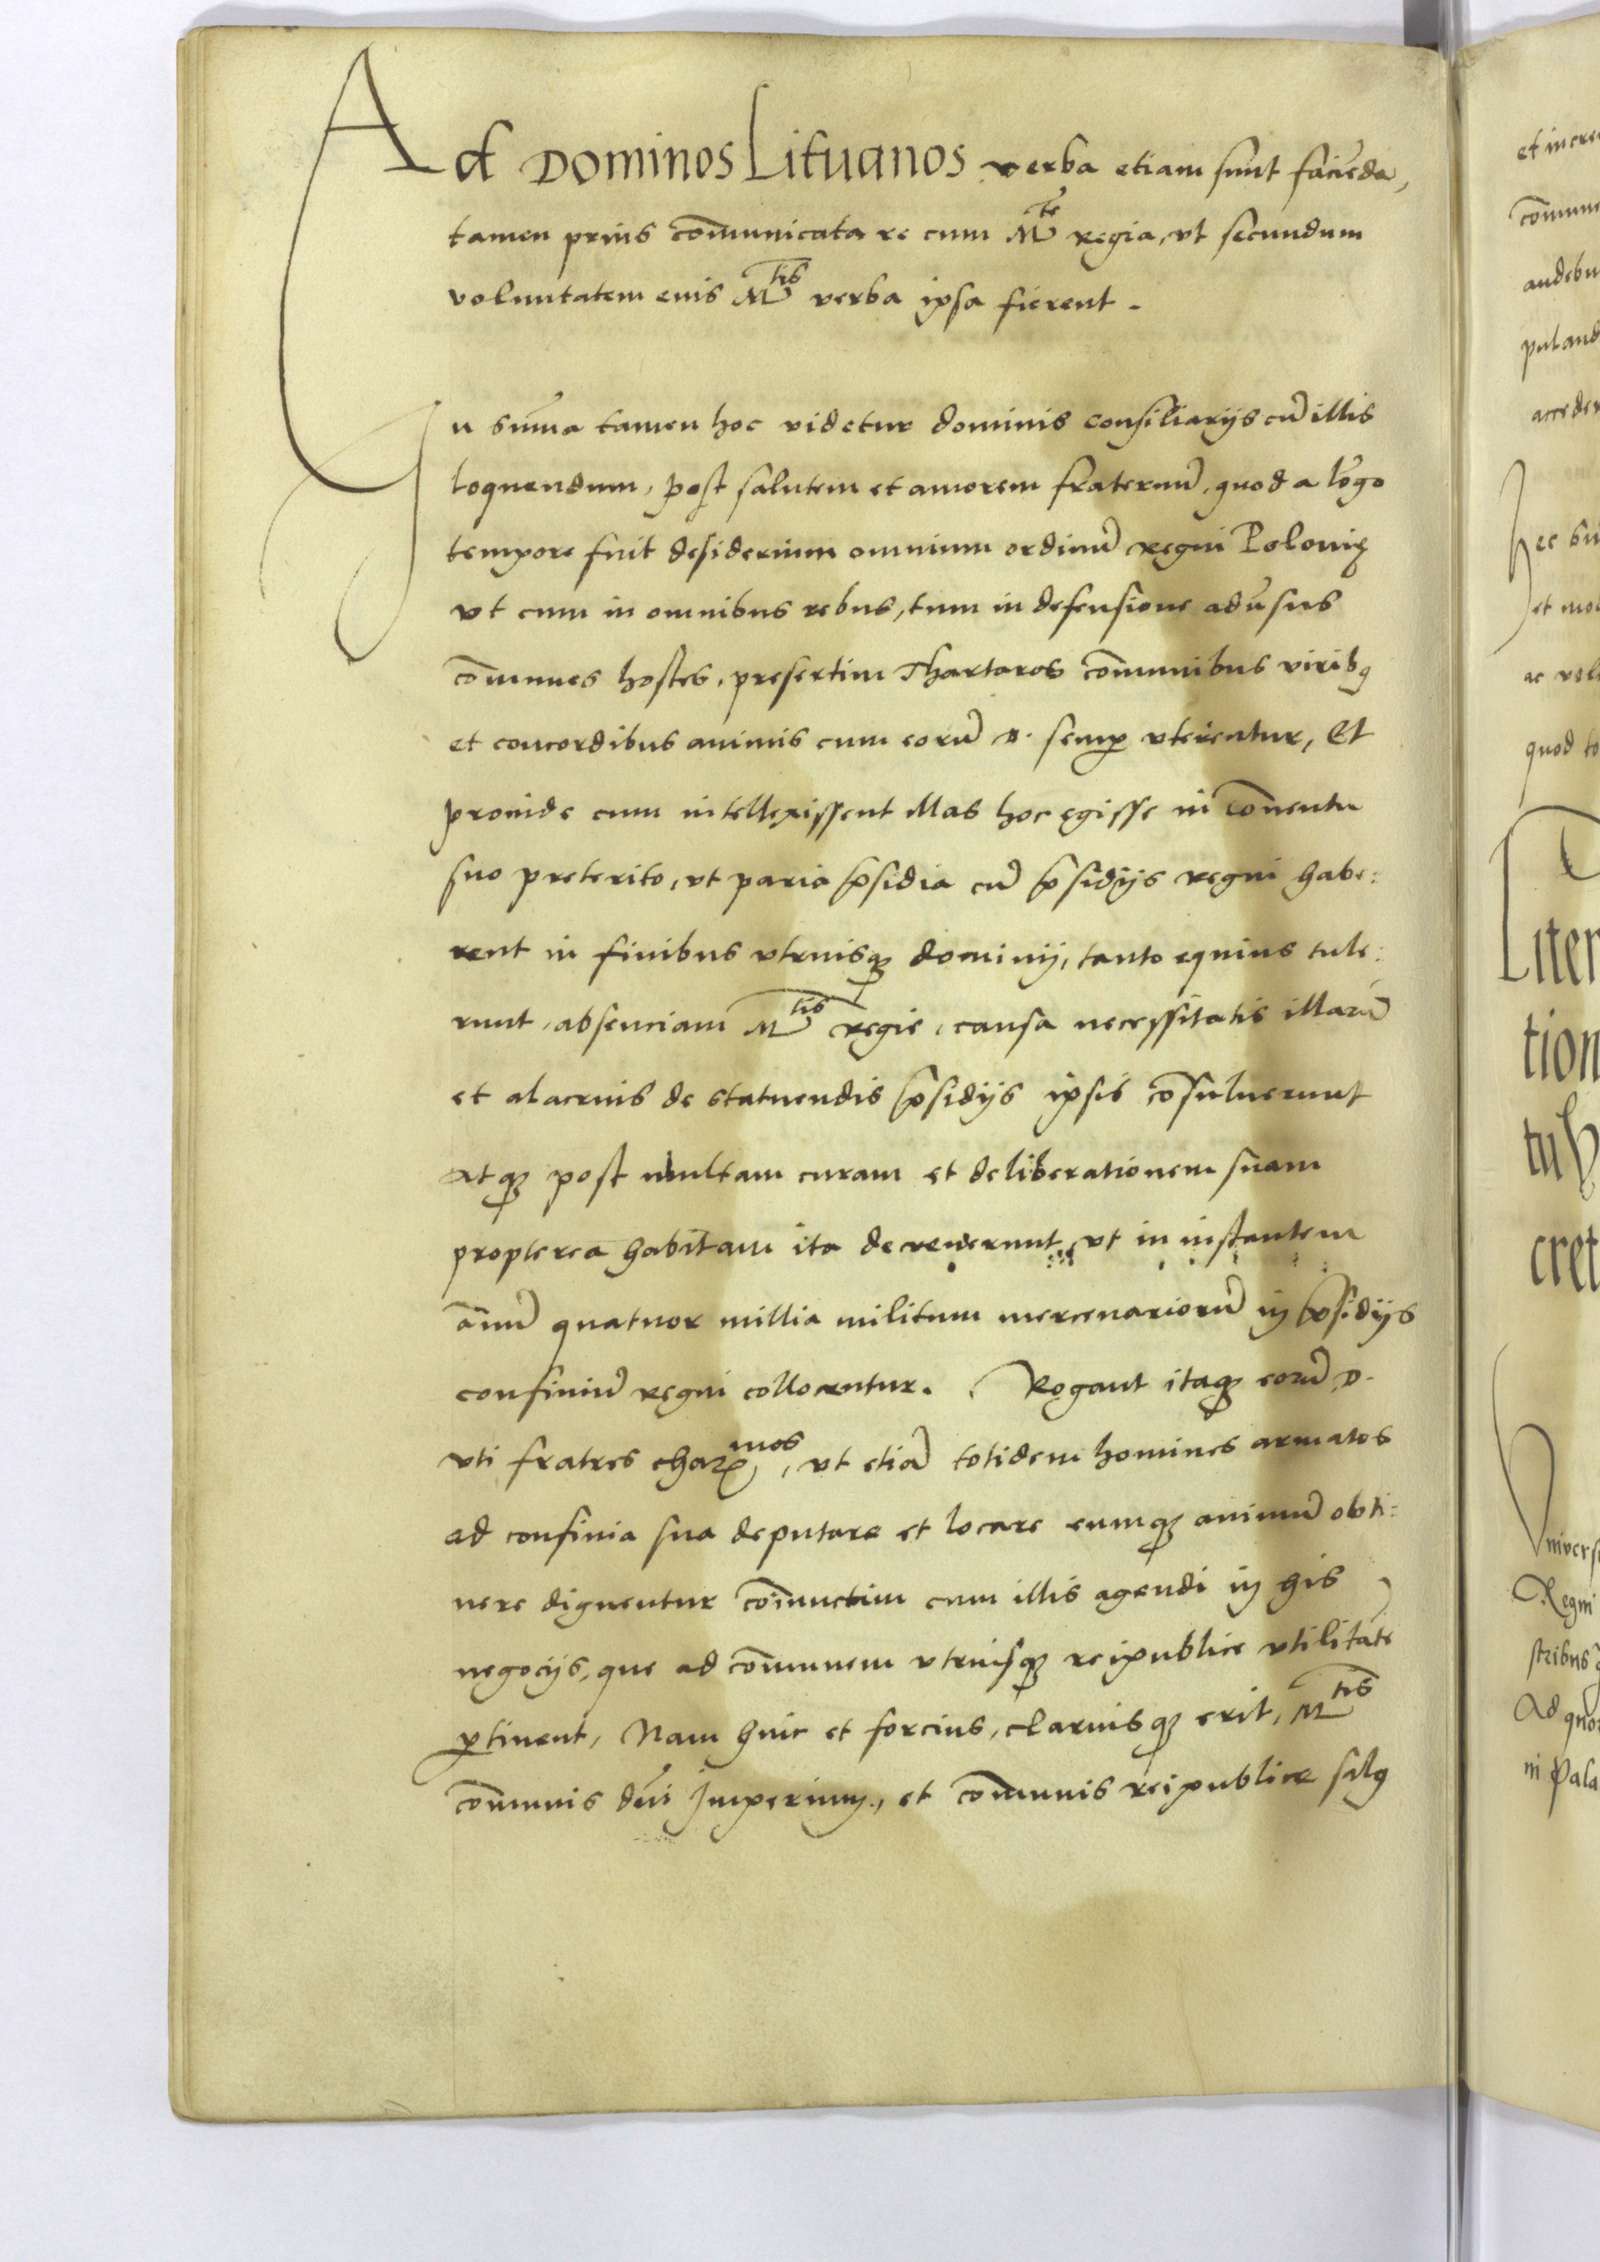 Ad Dominos Lituanos verba etiam sunt faciēda,
tamen prius cōmunicata re cum M^te regia, vt secundum
voluntatem eius M^tis verba ipsa fierent.
In sūma tamen hoc videtur dominis consiliarijs cū illis
loquendum, post salutem et amorem fraternū, quod a lōgo
tempore fuit desiderium omnium ordinū regni Polonię
vt cum in omnibus rebus, tum in defensione adūsus
cōmunes hostes, presertim Thartaros cōmunibus viribꝰ
et concordibus animis cum eorū D. semꝑ vterentur, Et
proinde cum intellexissent illas hoc egisse in cōuentu
suo preterito, vt paria p̄sidia cū p̄sidijs regni habe:
rent in finibus vtriusqꝫ dominij, tanto equius tule:
runt, absenciam M^tis regie, causa necessitatis illarū
et alacrius de statuendis p̄sidijs ipsis cōsuluerunt
Atqꝫ post multam curam et deliberationem suam
propterea habitam ita decreuerunt, vt in instantem
ānū quatuor millia militum mercenariorū in p̄sidijs
confiniū regni collocentur. Rogant itaqꝫ eorū D.
vti fratres chariꝰ^mos, vt etiā totidem homines armatos
ad confinia sua deputare et locare eumqꝫ animū obti:
nere dignentur cōiunctim cum illis agendi in his
negocijs, que ad cōmunem vtriusqꝫ reipublice vtilitatē
ꝑtinent, Nam huic et forcius, clariusqꝫ erit, M^tis
cōmunis dn̄i Imperium, et cōmunis reipublice salꝰ
et incre
cōmun
audebu
putand
acceder
Hec su
et mo
ac vol
quod to
Liter
tion
tuh
cret
Vniuers
Regni
stribus
Ad quo
ni Pala